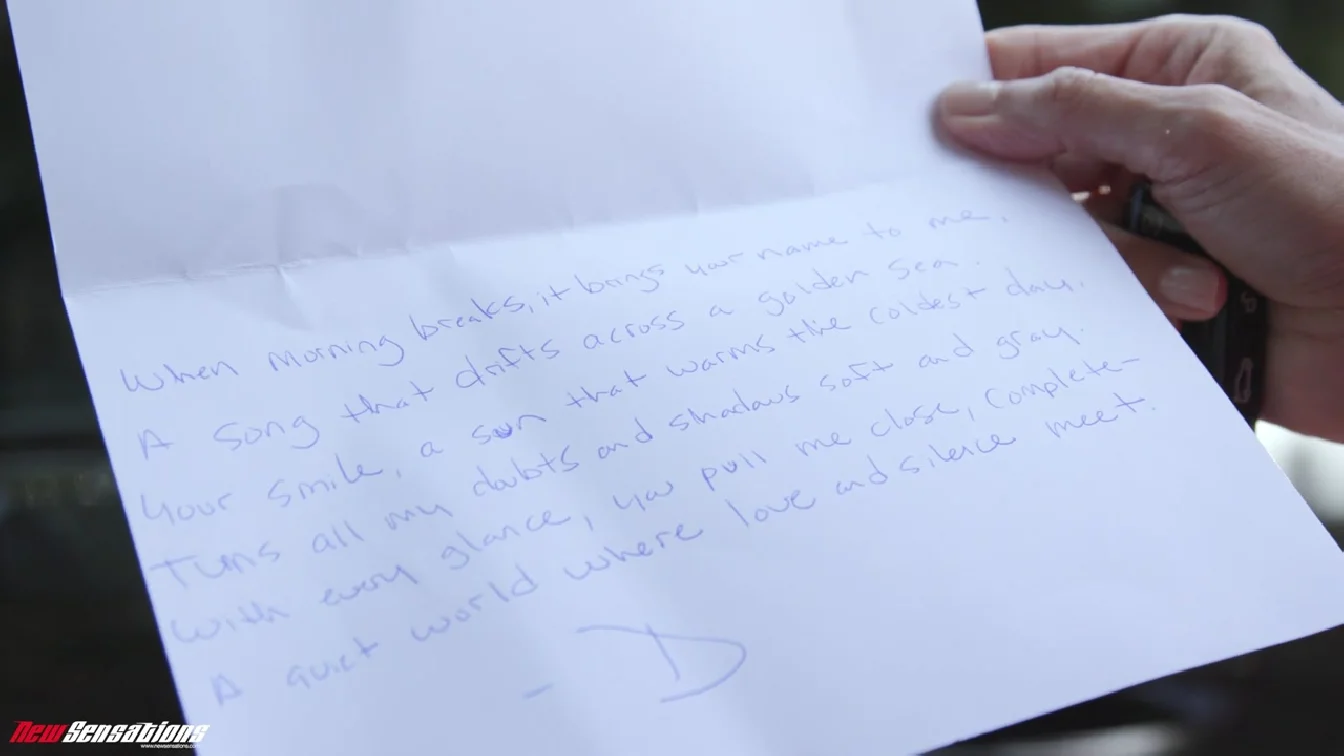 When Morning breaks, it brings your name to me,
A Song that drifts across a golden sea.
Your smile, a sun that warms the coldest day,
Turns all my doubts and shadows soft and gray.
With every glance, you pull me close, complete-
A quiet world where love and silence meet.
- D
NewSensations
www.newsensations.com